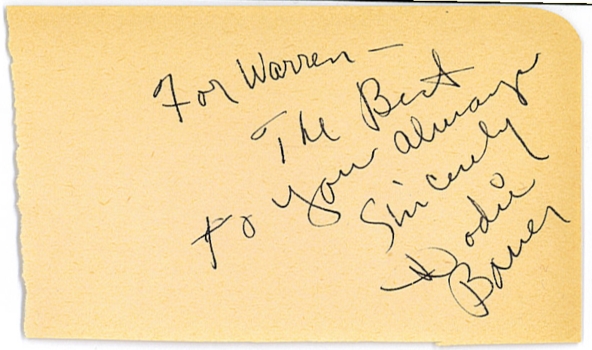 For Warren —
The Best
to you always
Sincerely
Dodie
Bauer